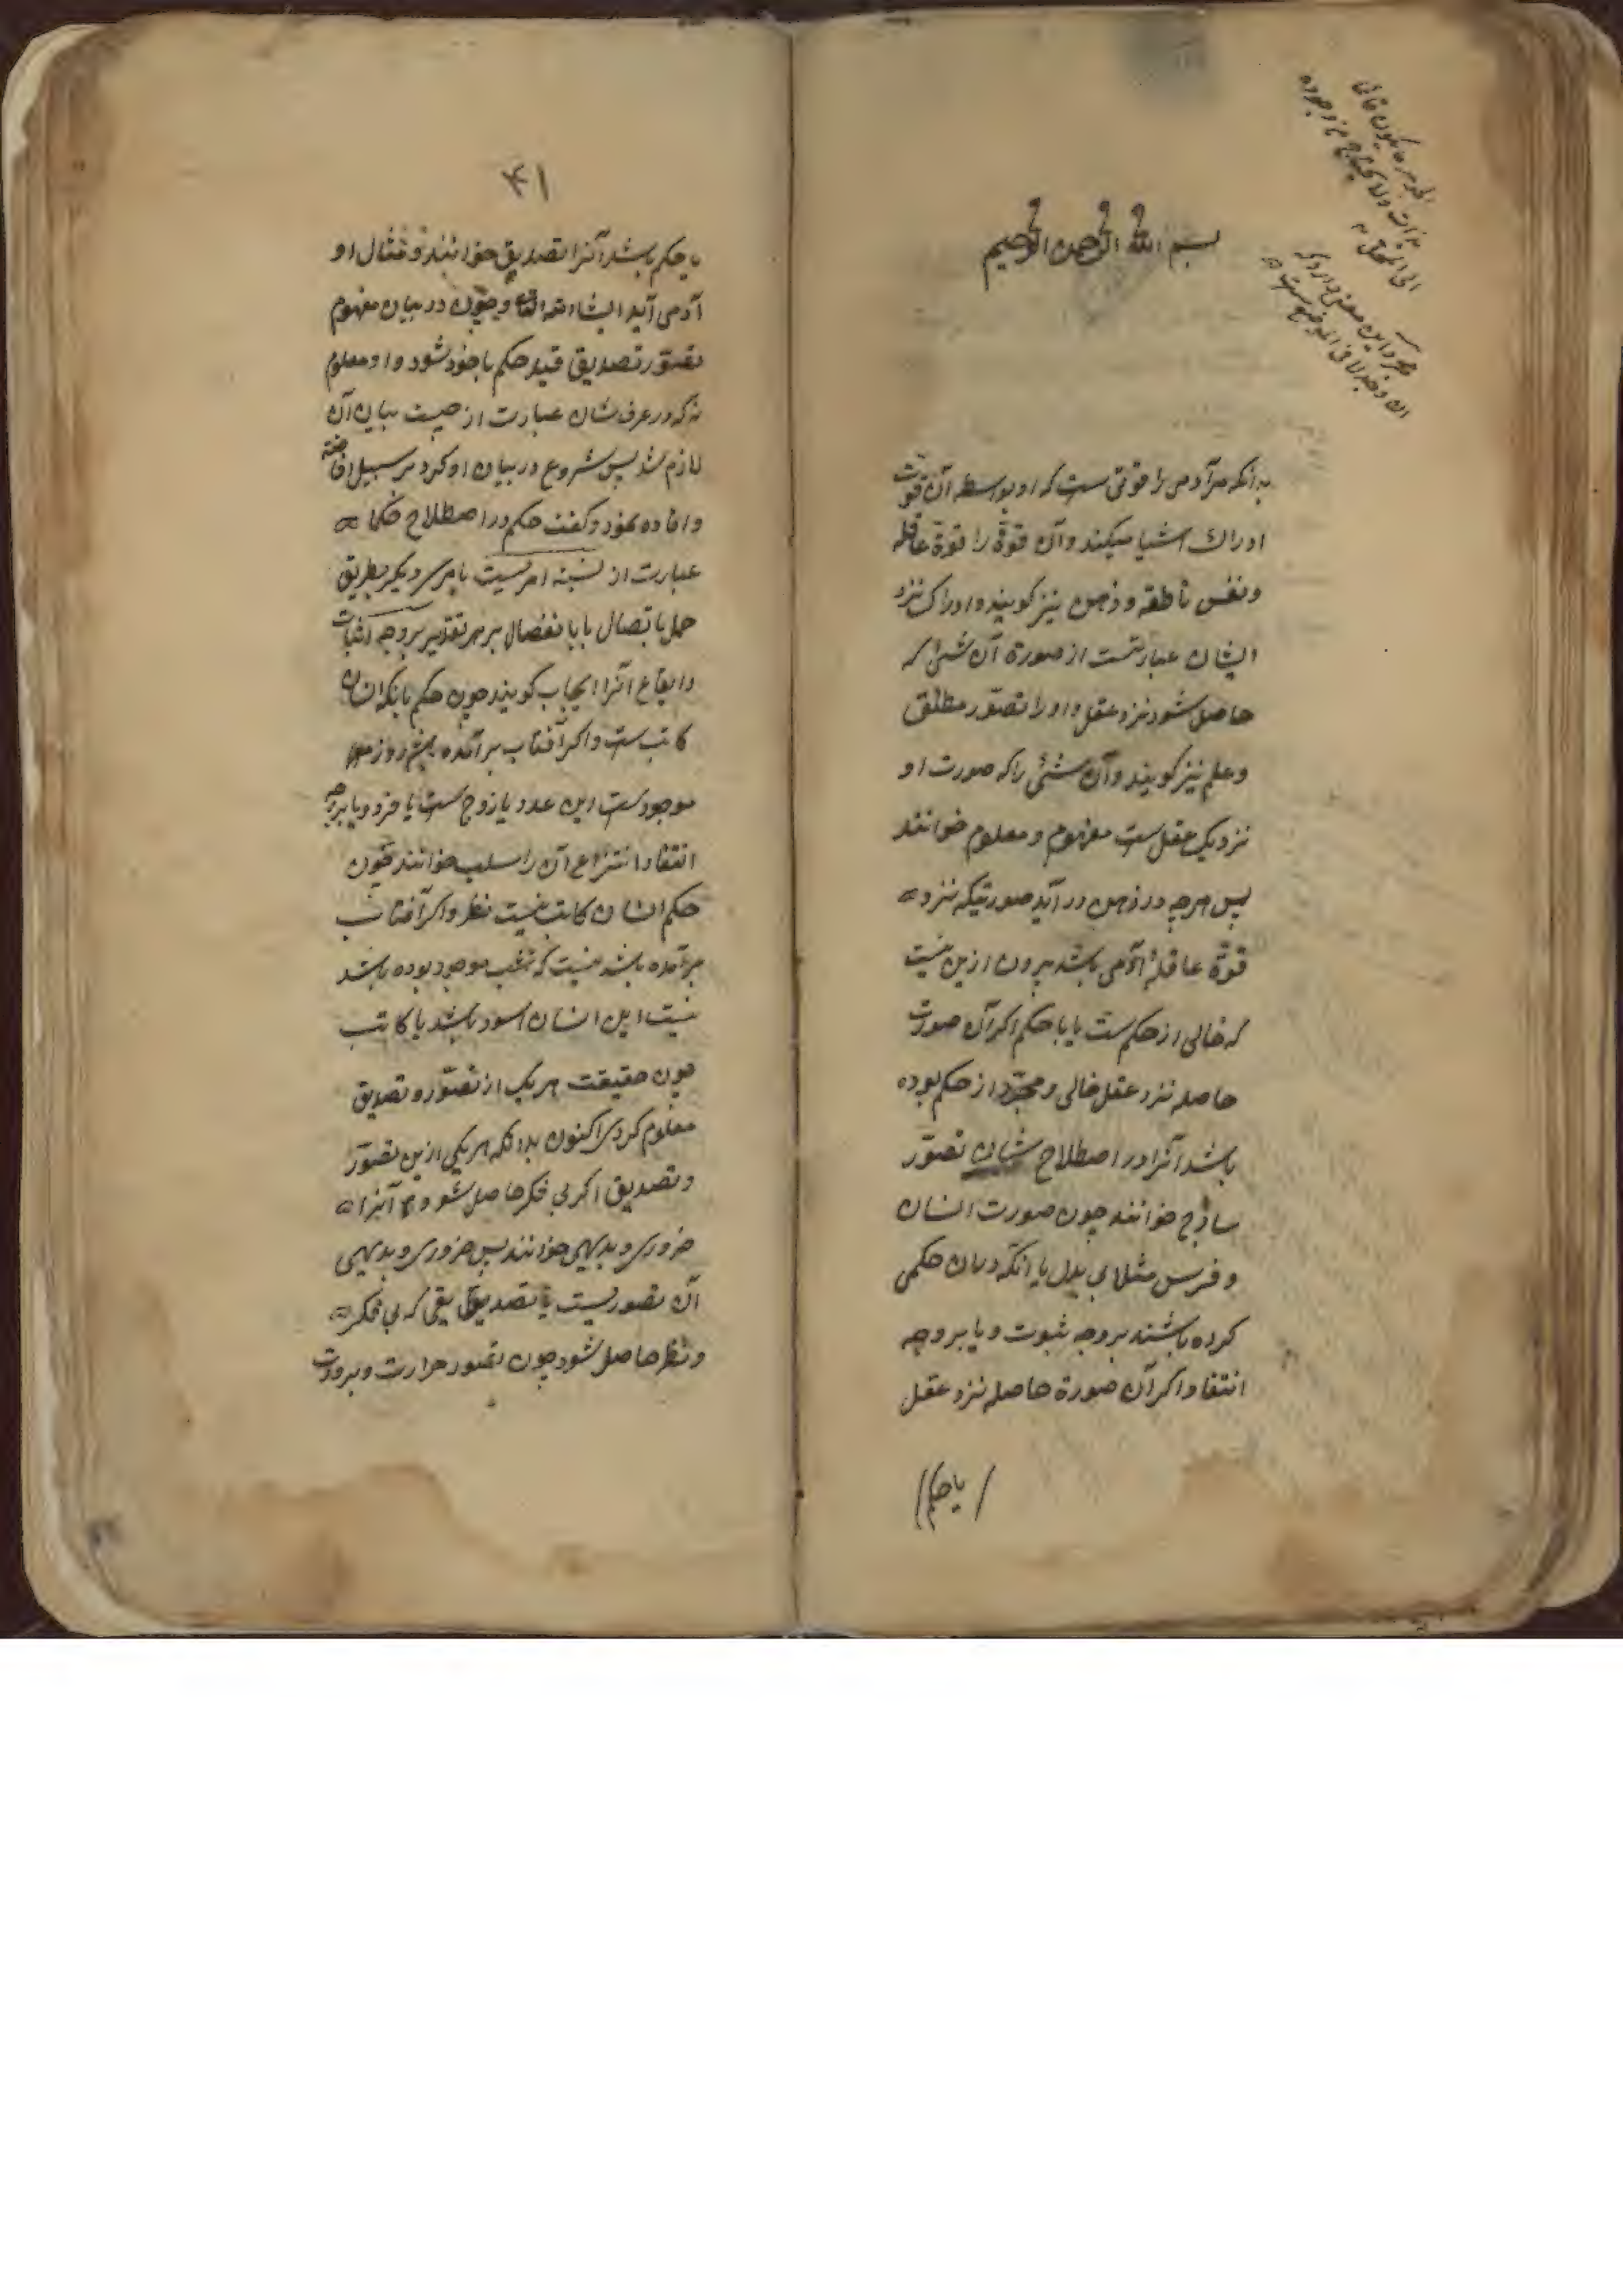 بسم الله الرحمن الرحیم
بدانکه مرآدمی را قوتی ست که او بواسطه آن قوت
ادراک اشیا میکند و آن قوة را قوة عاقله
و نفس ناطقه و ذهن نیز کویند و ادراک نزد
ایشان عبارتست از صورة آن شئ که
حاصل شود نزد عقل و او را تصوّر مطلق
و علم نیز کویند و آن شئ را که صورت او
نزدیک عقل ست مفهوم و معلوم خوانند
پس هرچه در ذهن در آید صورتیکه نزد
قوّة عاقلهٔ آدمی باشد بیرون ازین نیست
که خالی از حکم ست یا با حکم اکر آن صورت
حاصله نزد عقل خالی و مجرّد از حکم بوده
باشد آنرا در اصطلاح شان تصوّر
ساذج خوانند چون صورت انسان
و فرس مثلا بی بدل یا آنکه درمیان حکمی
کرده باشند بروجه ثبوت و یا بروجه
انتفا و اکر آن صورة حاصله نزد عقل
یا حکم
۴۱
با حکم باشد آنرا تصدیق خوانند و مثال او
آدمی آید انشاءالله تعالی و چون در بیان مفهوم
تصوّر تصدیق قید حکم ماخوذ شود و او معلوم
نه که در عرف شان عبارت از چیست بیان آن
لازم شد پس شروع در بیان او کرد بر سبیل افاضه
و افاده نمود و کفت حکم در اصطلاح حکما
عبارت از نسبة امریست بامری دیکر بطریق
حمل یا اتصال یا بانفصال بر هر تقدیر بروجه اثبات
و ایقاع آنرا ایجاب کویند چون حکم بانکه انسان
کاتب ست و اکر آفتاب برآمده پس روز
موجود ست این عدد یا زوج ست یا فرد و یا بروجه
انتفا و انتزاع آن را سلب خوانند چون
حکم انسان کاتب نیست نظر و اکر آفتاب
برآمده باشد نیست که شب موجود بوده باشد
نیست این انسان اسود باشد یا کاتب
چون حقیقت هر یک از تصوّر و تصدیق
معلوم کردی اکنون بدانکه هر یکی ازین تصوّر
و تصدیق اکر بی فکر حاصل شود آنرا
ضروری و بدیهی خوانند پس ضروری و بدیهی
آن تصوریست یا تصدیقی که بی فکر
و نظر حاصل شود چون تصور حرارت و برودت